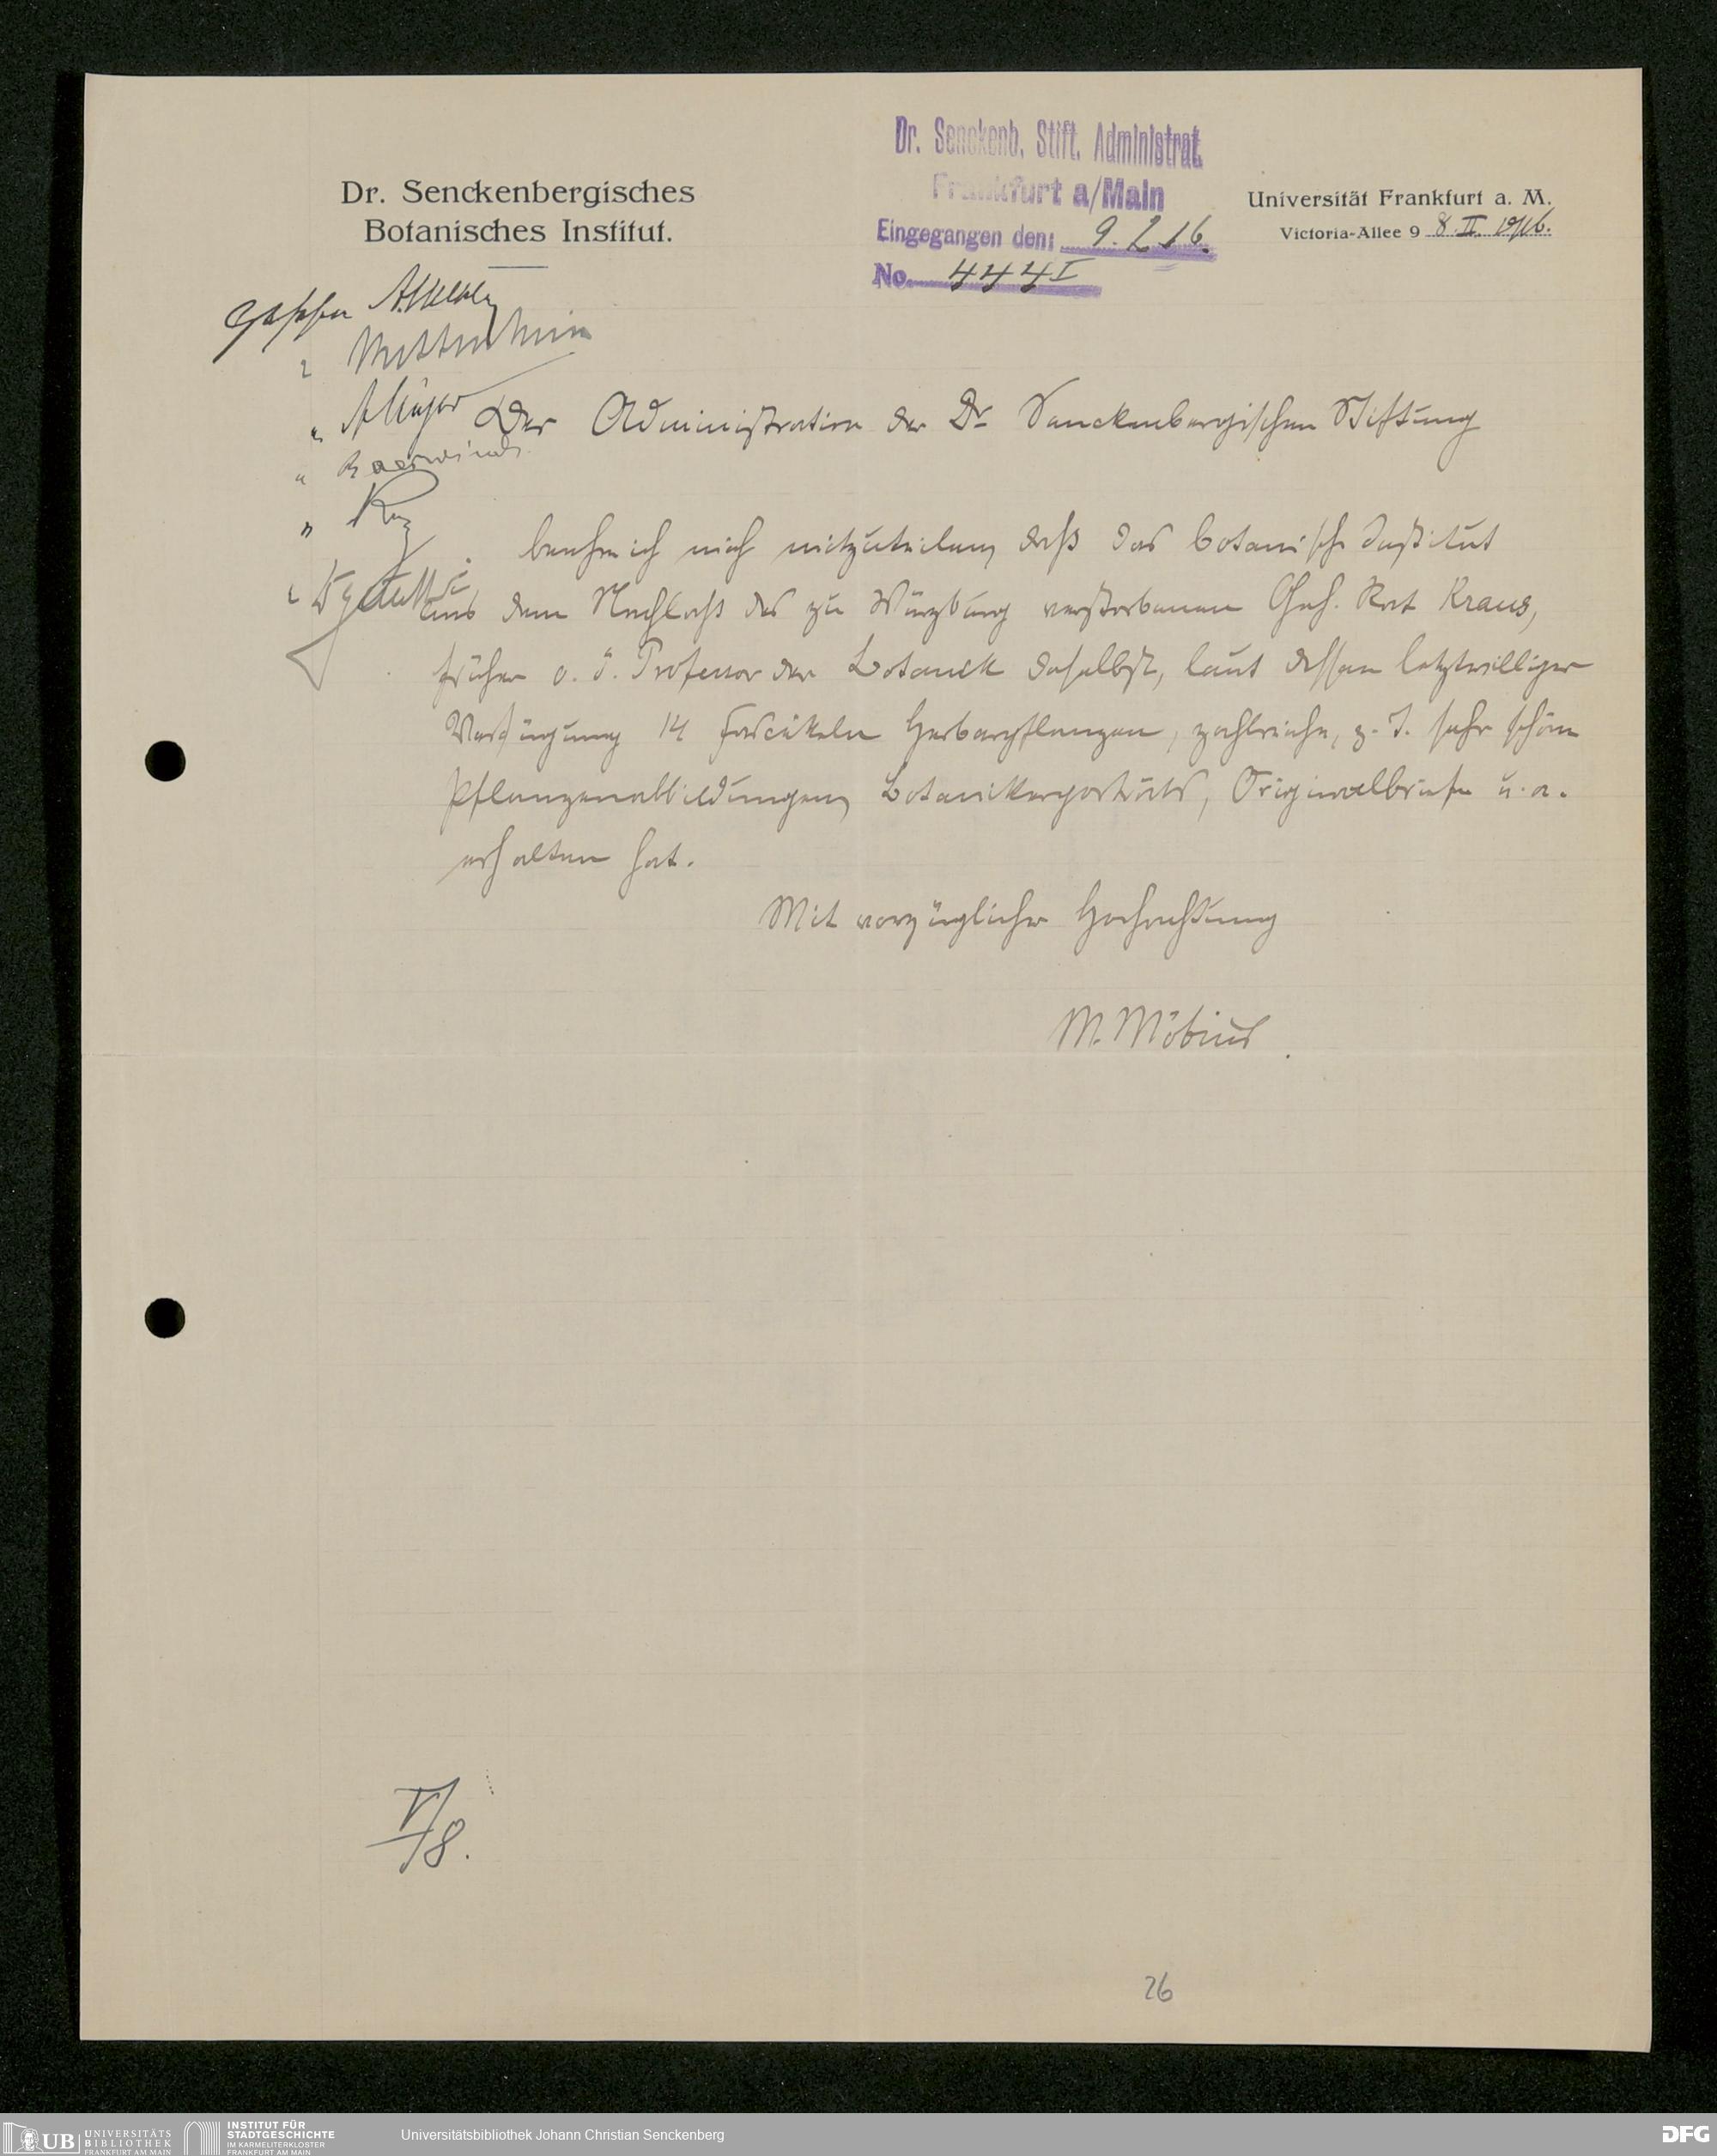 Dr. Senckenb. Stift. Administrat.
Frankfurt a/Main
Eingegangen den: 9. 2 16.
No. 444 I
Dr. Senckenbergisches
Botanisches Institut.
Universität Frankfurt a. M.
Victoria-Allee 9 8. II. 1916.
Gesehen
" 
" 
" Baerwind
" 
" 
Der Administration der Dr. Senckenbergischen Stiftung
beehre ich mich mitzuteilen, daß das botanische Institut
aus dem Nachlaß des zu Würzburg verstorbenen Geh. Rat Kraus,
früher o. ö. Professor der Botanik daselbst, laut dessen letztwilliger
Verfügung 14 Fascikeln Herbarpflanzen, zahlreiche, z. T. sehr schöne
Pflanzenabbildungen, Botanikerporträts, Originalbriefe u. a.
erhalten hat.
Mit vorzüglicher Hochachtung
M. Möbius.
V/8.
26
UB UNIVERSITÄTS
BIBLIOTHEK
FRANKFURT AM MAIN
INSTITUT FÜR
STADTGESCHICHTE
IM KARMELITERKLOSTER
FRANKFURT AM MAIN
Universitätsbibliothek Johann Christian Senckenberg
DFG